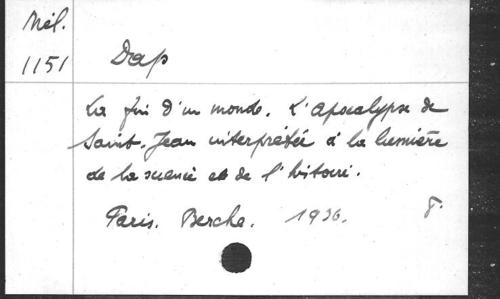 Mél.
1151
Drap
La fin d'un monde. L'Apocalypse de
Saint-Jean interprétée à la lumière
de la science et de l'histoire.
Paris. Berche. 1936. 8.